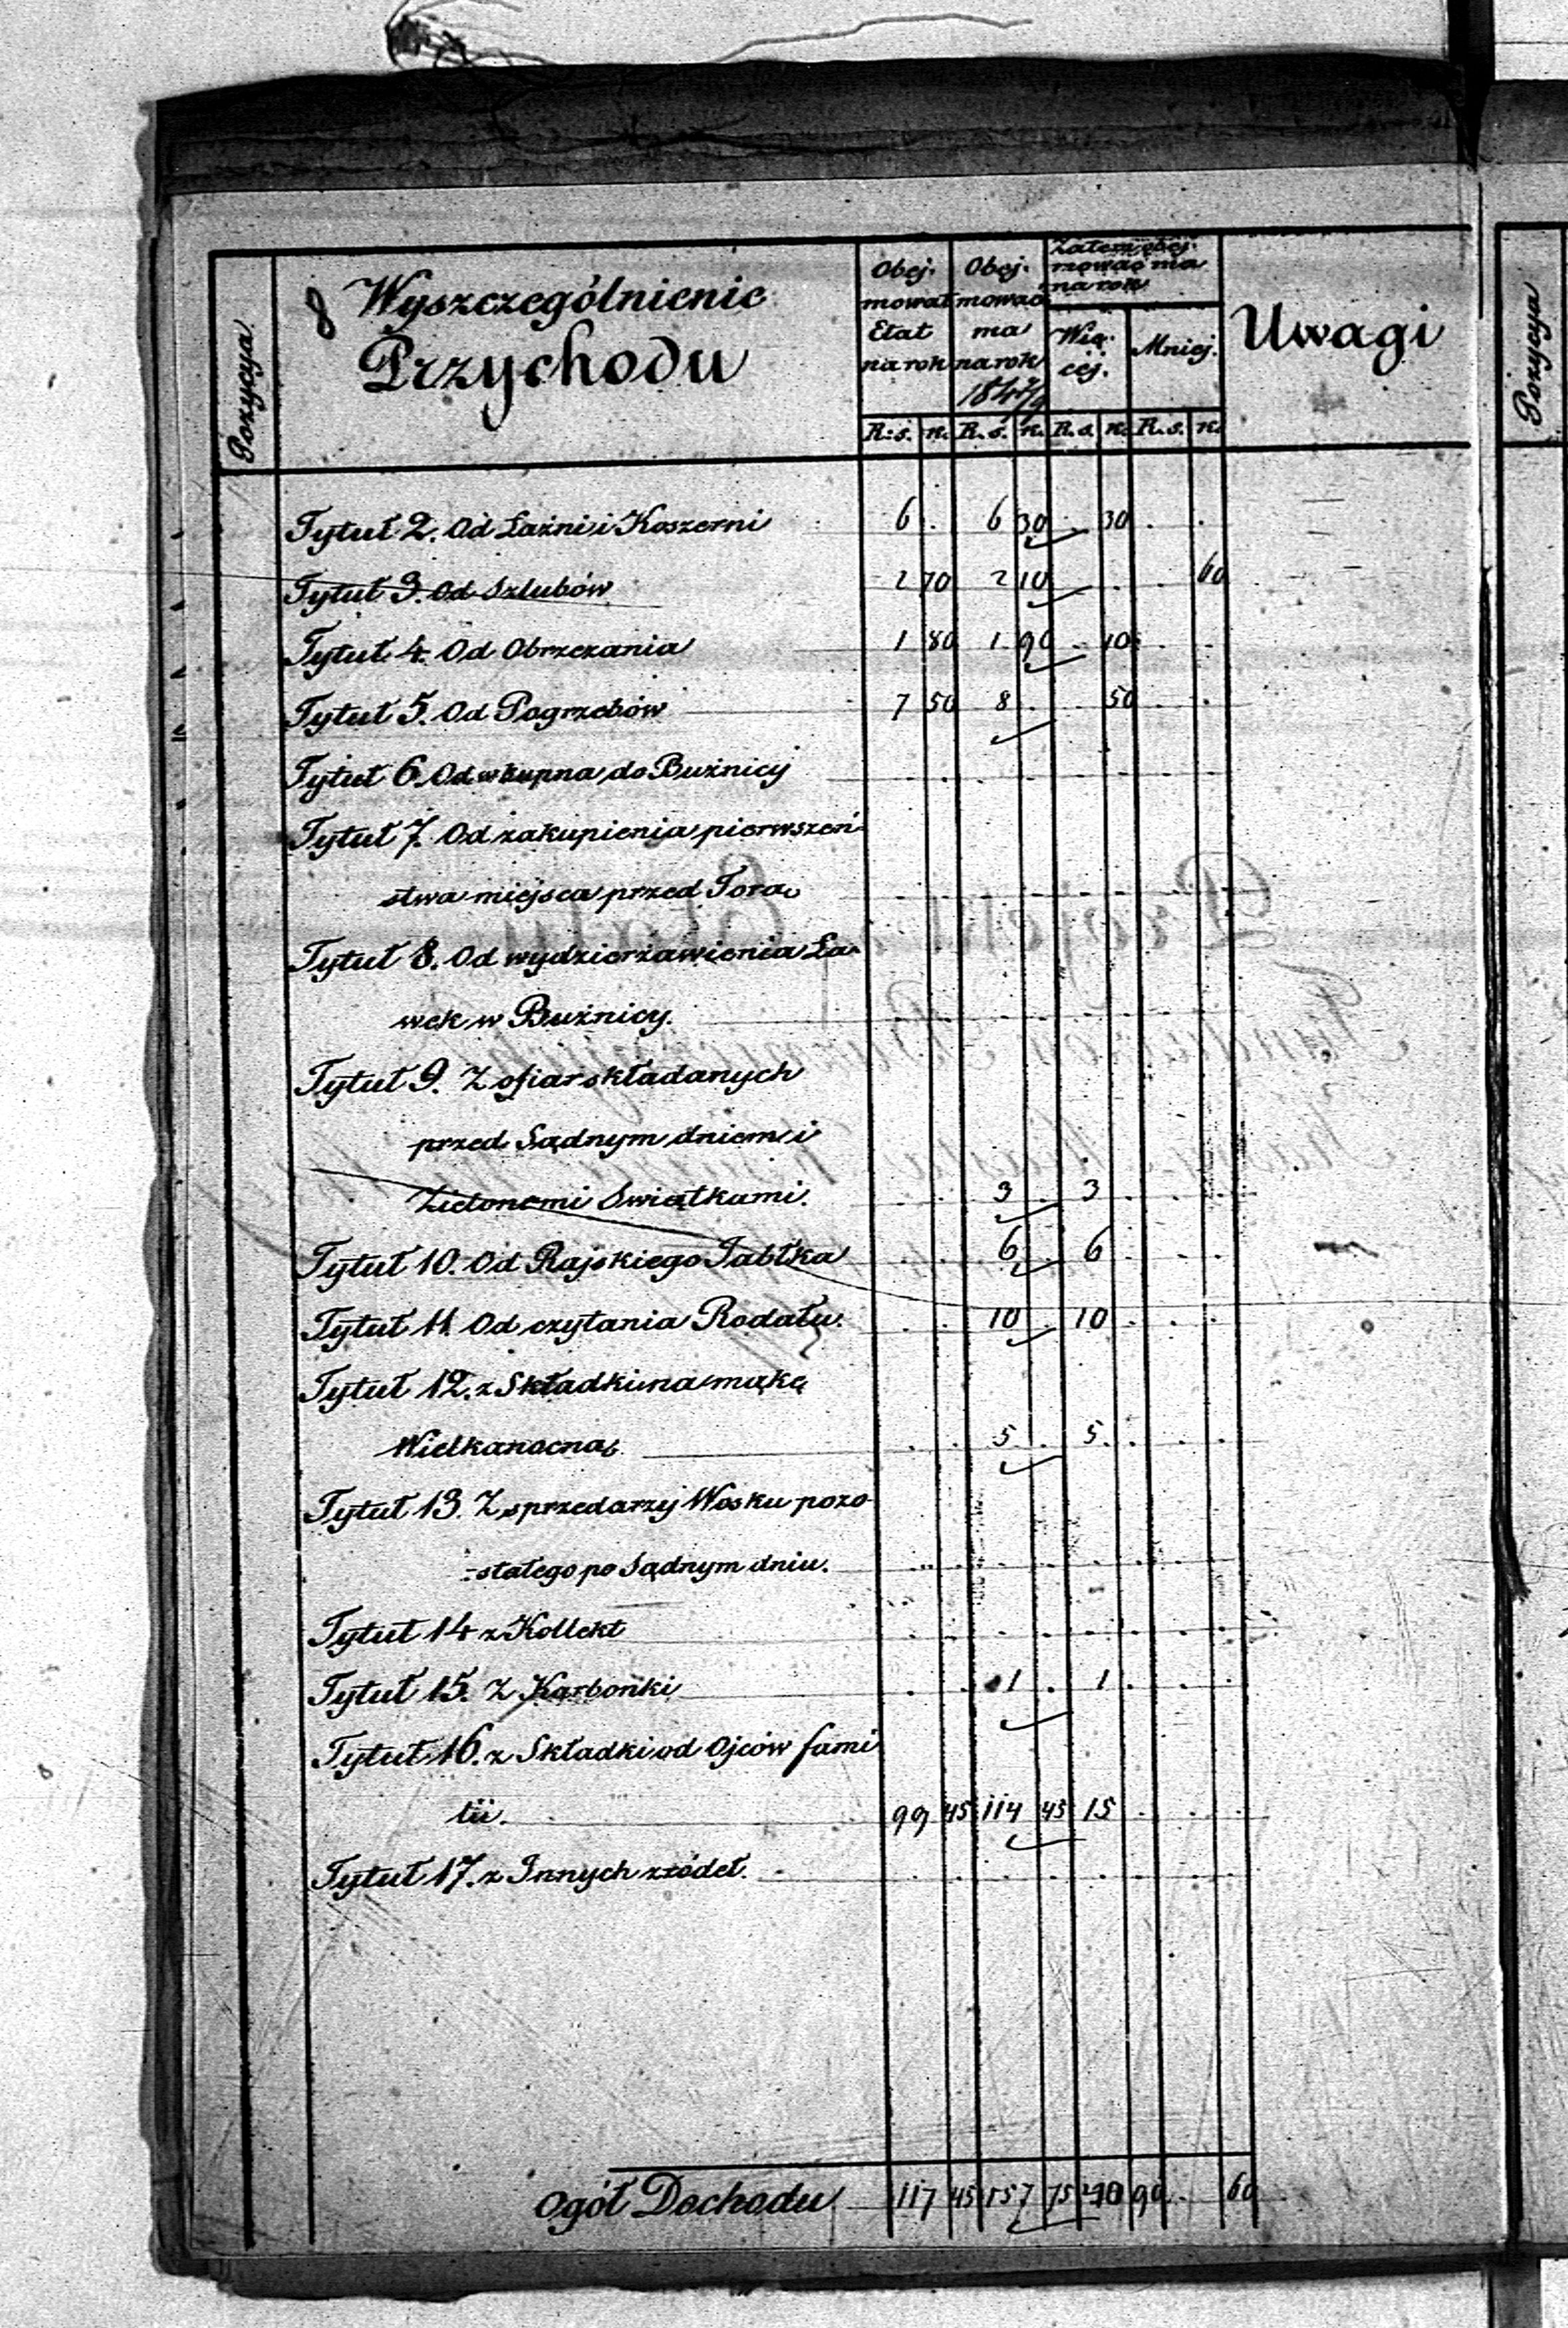 Pozycya
8 Wyszczególnienie
Przychodu
Obej-
mował
Etat
na rok
Obej-
mować
ma
na rok
184
Zatem obej-
mować ma
na rok
Wię-
cej.
Mniej.
Uwagi
Pozycya
R: s. k. R. s. k. R. s. k. R. s. k.
Tytuł 2. Od Łaźni i Koszerni 6 . 6 30 . 30 . .
Tytuł 3. Od Szlubów 2 70 2 10 . . . 60
Tytuł 4. Od Obrzezania 1 80 1 90 . 10 . .
Tytuł 5. Od Pogrzebów 7 50 8 . . 50 . .
Tytuł 6. Od wkupna do Bużnicy
Tytuł 7. Od zakupienia pierwszeń-
stwa miejsca przed Torą
Tytuł 8. Od wydzierżawienia Ła-
wek w Bużnicy.
Tytuł 9. Z ofiar składanych
przed Sądnym dniem i
Zielonemi Swiątkami. . . 3 . 3 . . .
Tytuł 10. Od Rajskiego Jabłka . . 6 . 6 . . .
Tytuł 11. Od czytania Rodału. . . 10 . 10 . . .
Tytuł 12. z Składki na mąkę
Wielkanocną . . 5 . 5 . . .
Tytuł 13. Z sprzedarzy Wosku pozo-
-stałego po Sądnym dniu.
Tytuł 14 z Kollekt
Tytuł 15. Z Karbonki . . 1 . 1 . . .
Tytuł 16. z Składki od Ojców fami
lii. 99 45 114 45 15 . . .
Tytuł 17. z Innych źródeł.
Ogół Dochodu 117 45 157 75 90 . 60